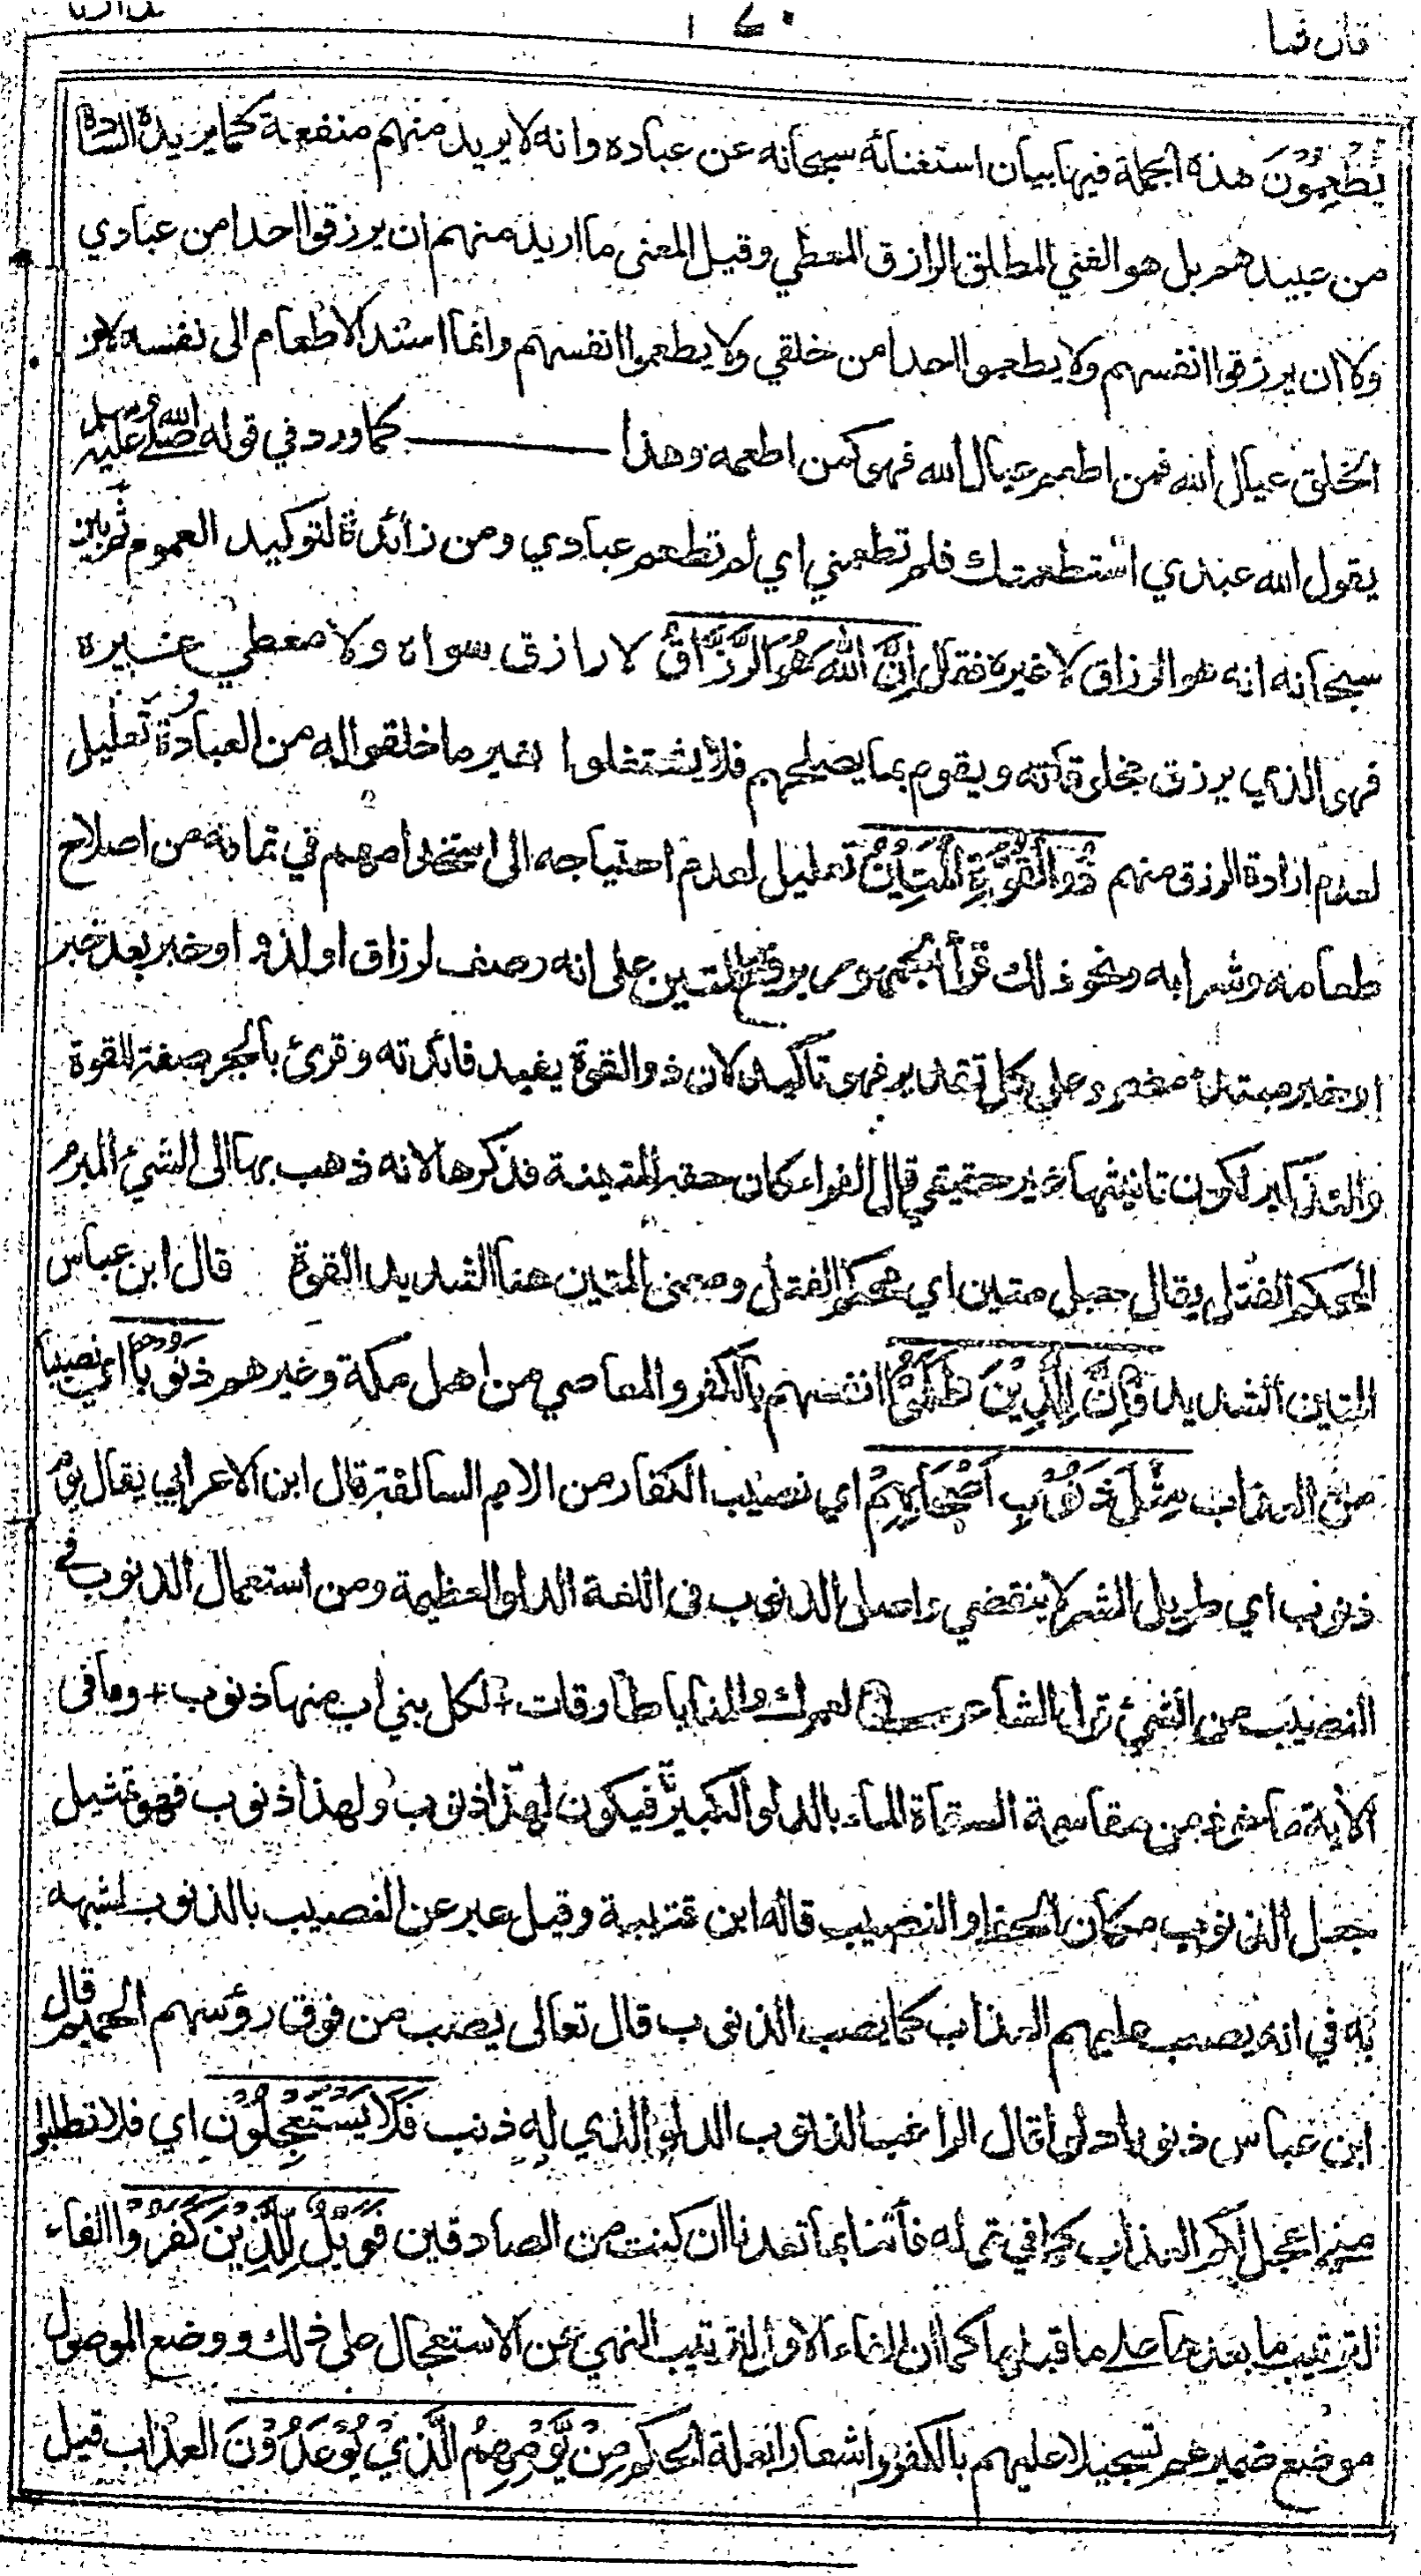 قال فما
يُّطْعِمُوْنَ هذه الجملة فيها بيان استغنائه سبحانه عن عباده وانه لا يريد منهم منفعة كما يريده السادة
من عبيدهم بل هو الغني المطلق الرازق المعطي وقيل المعنى ما اريد منهم ان يرزقوا احدا من عبادي
ولا ان يرزقوا انفسهم ولا يطعموا احدا من خلقي ولا يطعموا انفسهم وانما اسند الاطعام الى نفسه لان
الخلق عيال الله فمن اطعم عيال الله فهو كمن اطعمه وهذا كما ورد في قوله صلى الله عليه وسلم
يقول الله عبدي استطعمتك فلم تطعمني اي لم تطعم عبادي ومن زائدة لتوكيد العموم ثم بين
سبحانه انه هو الرزاق لا غيره فقال اِنَّ اللّٰهَ هُوَ الرَّزَّاقُ لا رازق سواه ولا معطي غيره
فهو الذي يرزق مخلوقاته ويقوم بما يصلحهم فلا يشتغلوا بغير ما خلقوا له من العبادة تعليل
لعدم ارادة الرزق منهم ذُو الْقُوَّةِ الْمَتِيْنُ تعليل لعدم احتياجه الى استخدامهم في من اصلاح
طعامه وشرابه ونحو ذلك قرأ الجمهور برفع المتين على انه وصف لرزاق او لذو او خبر بعد خبر
او خبر مبتدأ مضمر وعلى كل تقدير فهو تأكيد لان ذو القوة يفيد فائدته وقرئ بالجر صفة للقوة
والتذكير لكون تانيثها غير حقيقي قال الفراء كان حقه المتينة فذكرها لانه ذهب بها الى الشيء المبرم
المحكم الفتل يقال حبل متين اي محكم الفتل ومعنى المتين هنا الشديد القوة قال ابن عباس
المتين الشديد فَاِنَّ لِلَّذِيْنَ ظَلَمُوْا انفسهم بالكفر والمعاصي من اهل مكة وغيرهم ذَنُوْبًا اي نصيبا
من العذاب مِّثْلَ ذَنُوْبِ اَصْحٰبِهِمْ اي نصيب الكفار من الامم السالفة قال ابن الاعرابي يقال يوم
ذنوب اي طويل الشر لا ينقضي واصل الذنوب في اللغة الدلو العظيمة ومن استعمال الذنوب في
النصيب من الشيء قول الشاعر لعمرك والمنايا طارقات + لكل بني اب منها ذنوب + وما في
الآية ماخوذ من مقاسمة السقاة الماء بالدلو الكبير فيكون لهذا ذنوب ولهذا ذنوب فهو تمثيل
جعل الذنوب مكان الحظ او النصيب قاله ابن قتيبة وقيل عبر عن النصيب بالذنوب لشبهه
به في انه يصب عليهم العذاب كما يصب الذنوب قال تعالى يصب من فوق رؤسهم الحميم قال
ابن عباس ذنوبا دلوا قال الراغب الذنوب الدلو الذي له ذنب فَلَا يَسْتَعْجِلُوْنِ اي فلا تطلبوا
مني اعجل لكم العذاب كما في قوله فأتنا بما تعدنا ان كنت من الصادقين فَوَيْلٌ لِّلَّذِيْنَ كَفَرُوْا الفاء
لترتيب ما بعدها على ما قبلها كما ان الفاء الاولى لترتيب النهي عن الاستعجال على ذلك ووضع الموصول
موضع ضميرهم تسجيلا عليهم بالكفر واشعارا بعلة الحكم مِنْ يَّوْمِهِمُ الَّذِيْ يُوْعَدُوْنَ العذاب قيل